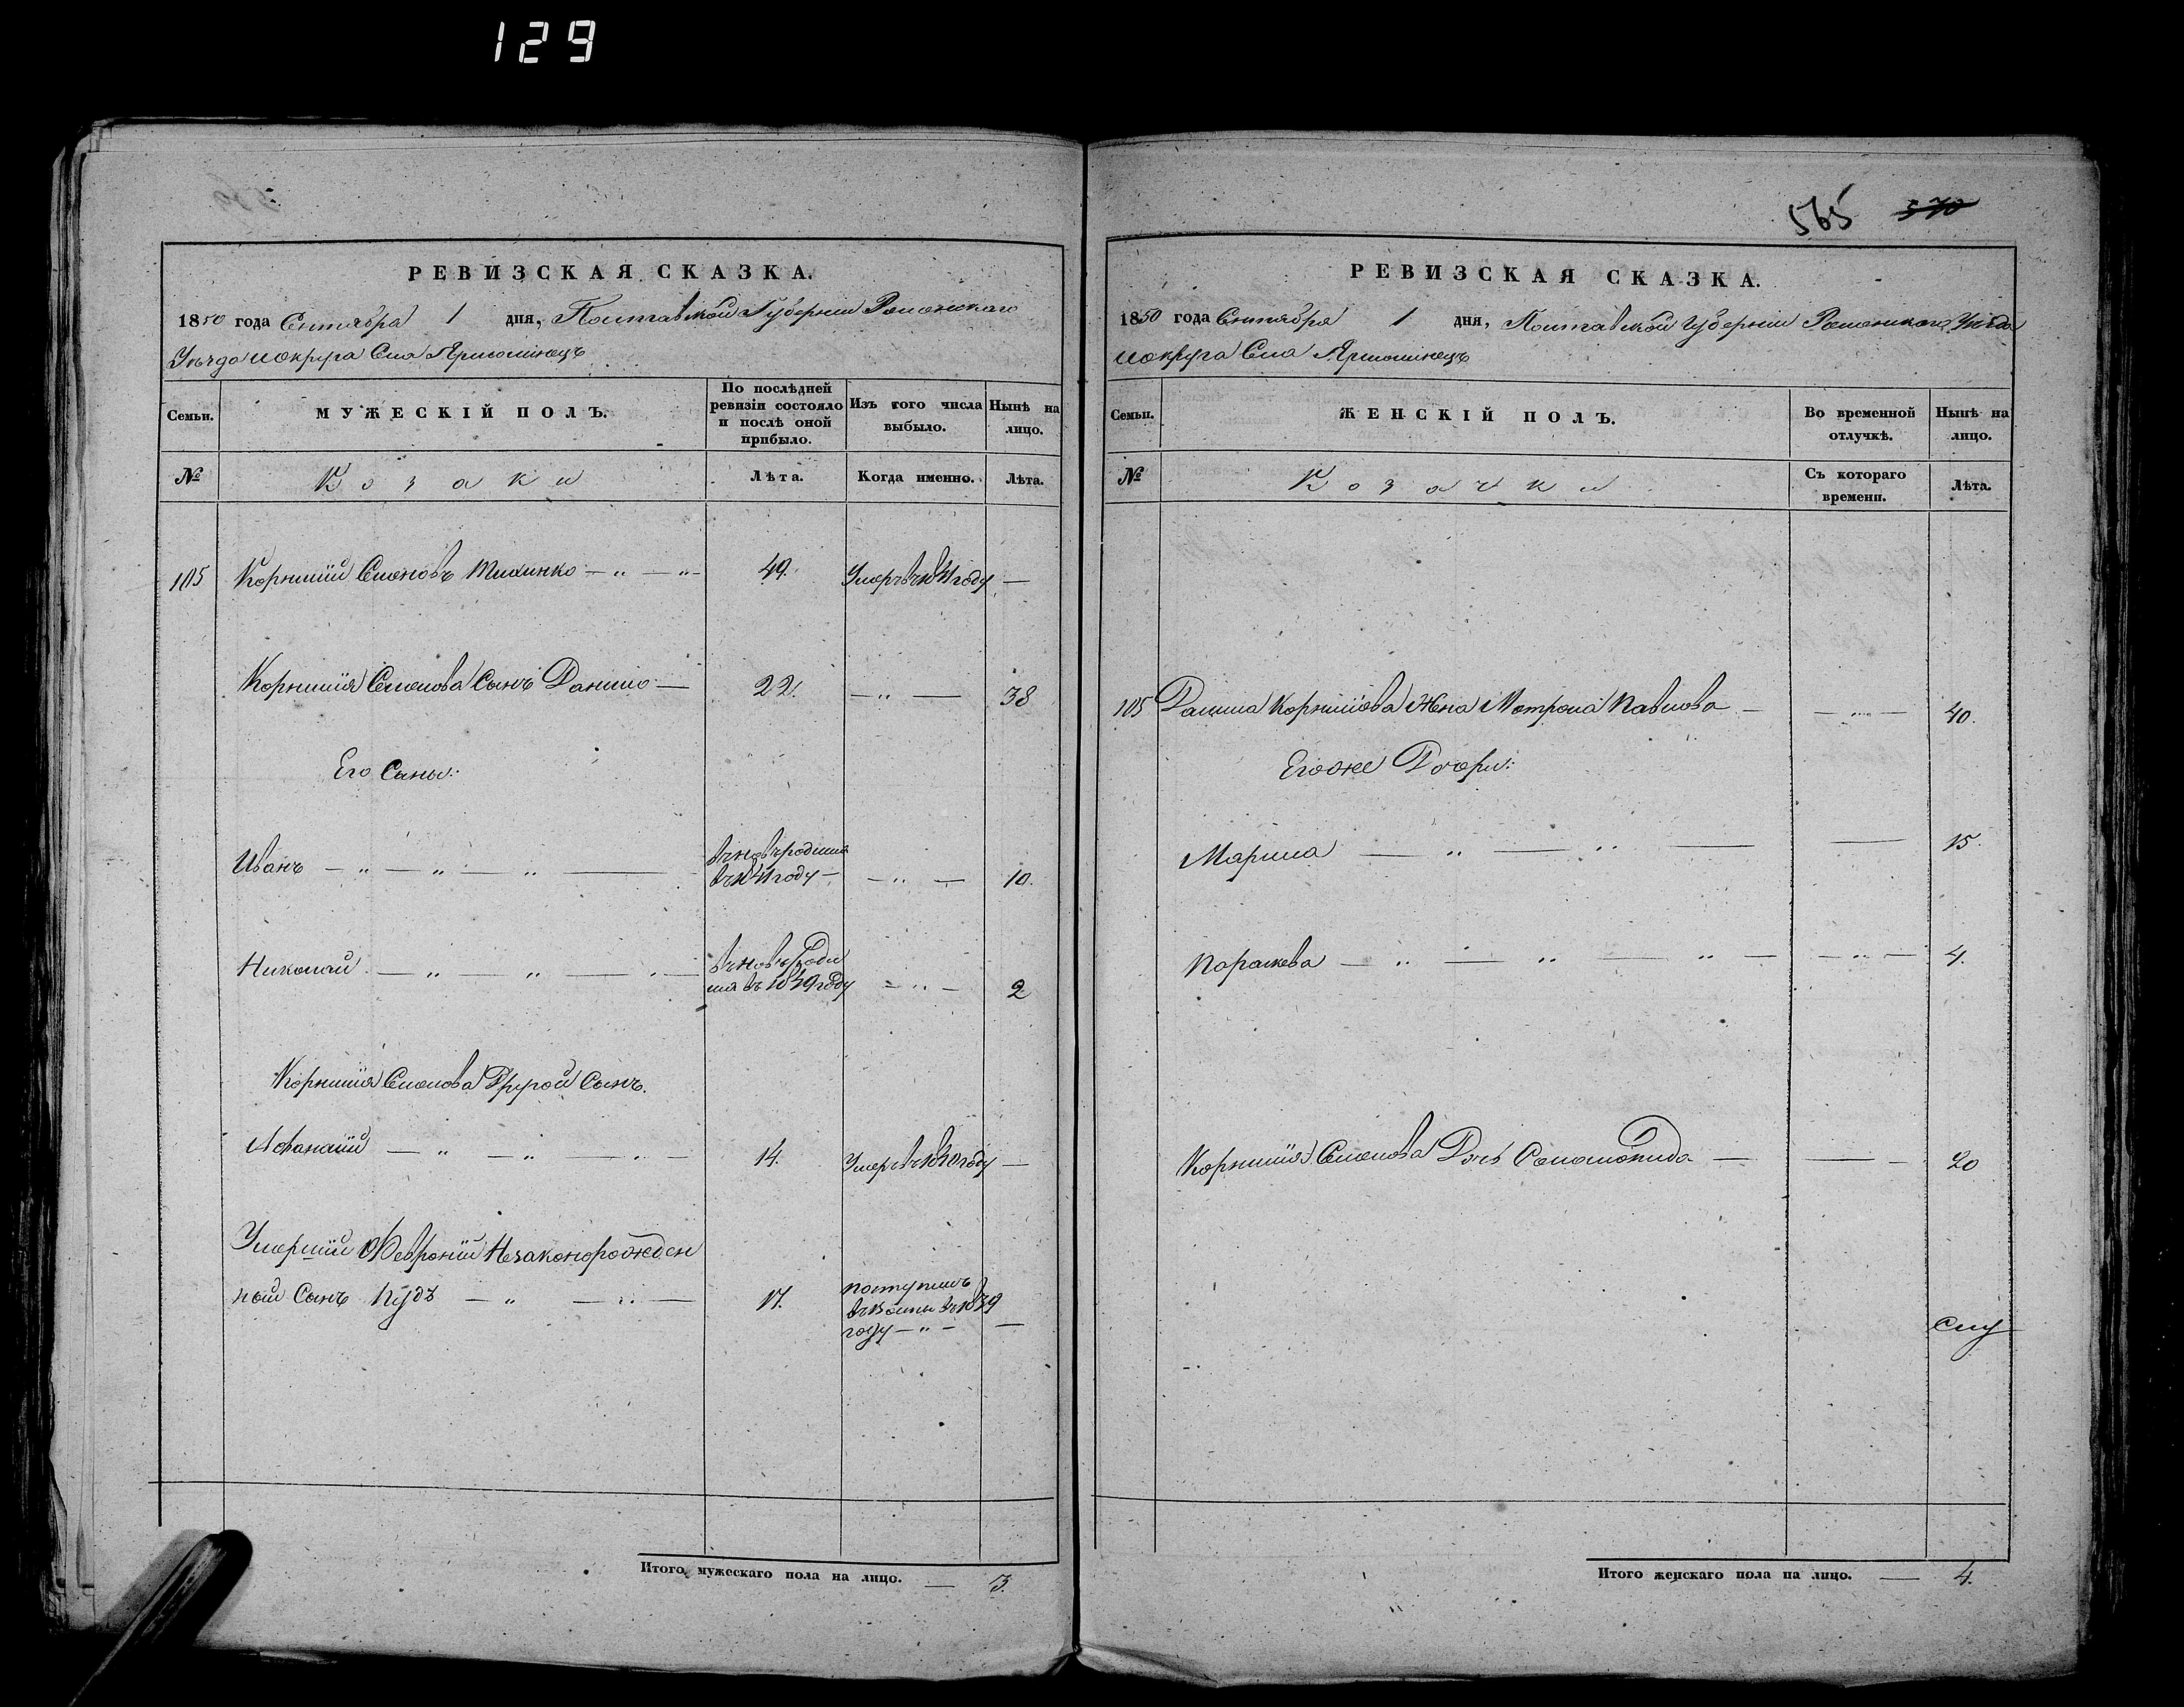 129
РЕВИЗСКАЯ СКАЗКА.
1850 года Сентября 1 дня, Полтавской Губернии Роменскаго
Уезда и округа Села Ярмолинецъ
Семьи.
МУЖЕСКІЙ ПОЛЪ.
По послѣдней ревизіи состояло и послѣ оной прибыло.
Изъ того числа выбыло.
Нынѣ на лицо.
№
Козаки
Лѣта.
Когда именно.
Лѣта.
105 Корнилій Семеновъ 49. Умеръ въ 1841 году —
Корнилія Семенова Сынъ Данило — 22. — „ — 38
Его Сыны:
Иванъ — „ — „ — „ — въновьродился
въ 1841 году — — „ — 10.
Николай — „ — „ — вънов роди
лся въ 1849 году — „ — 2
Корнилія Семенова Другой Сынъ.
Афанасій — „ — „ — 14. Умеръ въ 1840 году —
Умершій Февроніи Незаконорожден
ной Сынъ Кудъ — „ — „ — 17. поступилъ
въ 1839
году — „ — —
Итого мужескаго пола на лицо. — 3.
565 570
РЕВИЗСКАЯ СКАЗКА.
1850 года Сентября 1 дня, Полтавской Губерніи Роменскаго Уезда
и округа Села Ярмолинецъ
Семьи.
ЖЕНСКІЙ ПОЛЪ.
Во временной отлучкѣ.
Нынѣ на лицо.
№
Козачки
Съ котораго времени.
Лѣта.
105 Данила Корнилова Жена Мотрона Павлова — — „ — 40.
Егоже Дочери:
Марина — „ — „ — — 15.
Параскева — „ — „ — „ — — „ — 4.
Корнилія Семенова Дочь Соломонида — — 20
Слу
Итого женскаго пола на лицо. — 4.